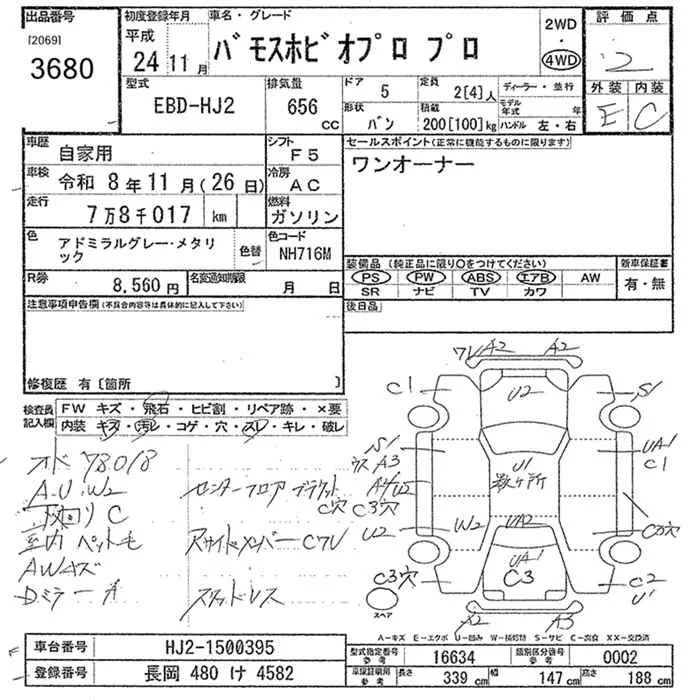 出品番号
[2069]
3680
初度登録年月
平成
24 11月
車名・グレード
バモスホビオプロ プロ
2WD
・
4WD
評価点
2
外装 内装
E C
型式
EBD-HJ2
排気量
656
cc
ドア
5
定員
2[4]人
形状
バン
積載
200[100]kg
ディーラー・並行
モデル年式 年
ハンドル 左・右
車歴
自家用
シフト
F5
車検
令和 8年11月(26日)
冷房
AC
走行
7万8千017 km
燃料
ガソリン
色
アドミラルグレー・メタリック
色替
色コード
NH716M
R券
8,560円
名変通知期限
月 日
セールスポイント(正常に機能するものに限ります)
ワンオーナー
装備品(純正品に限り○をつけてください)
PS PW ABS エアB AW
SR ナビ TV カワ
新車保証書
有・無
後日品
注意事項申告欄(不具合内容等は具体的に記入して下さい)
修復歴 有〔箇所 〕
検査員記入欄
FW キズ・飛石・ヒビ割・リペア跡・×要
内装 キズ・汚レ・コゲ・穴・スレ・キレ・破レ
オド 78018
A-U.W2
下回り C
室内 ペット毛
AWキズ
Dミラー
センターフロア ブラケット
C穴
サイドメンバー C7U
スタッドレス
7U A2 A2
C1 U2 S1
S1 A3 U1 UA1 C1
数ヶ所
C穴 C3穴
U2 W2 UA2 C穴
UA1
C3穴 C3 C2
U1
スペア
A2 A3
A-キズ E-エクボ U-凹み W-補修跡 S-サビ C-腐食 XX-交換済
車台番号
HJ2-1500395
登録番号
長岡 480 け 4582
型式指定番号
参考
16634
類別区分番号
参考
0002
車検証車用
参考
長さ 339cm 幅 147cm 高さ 188cm